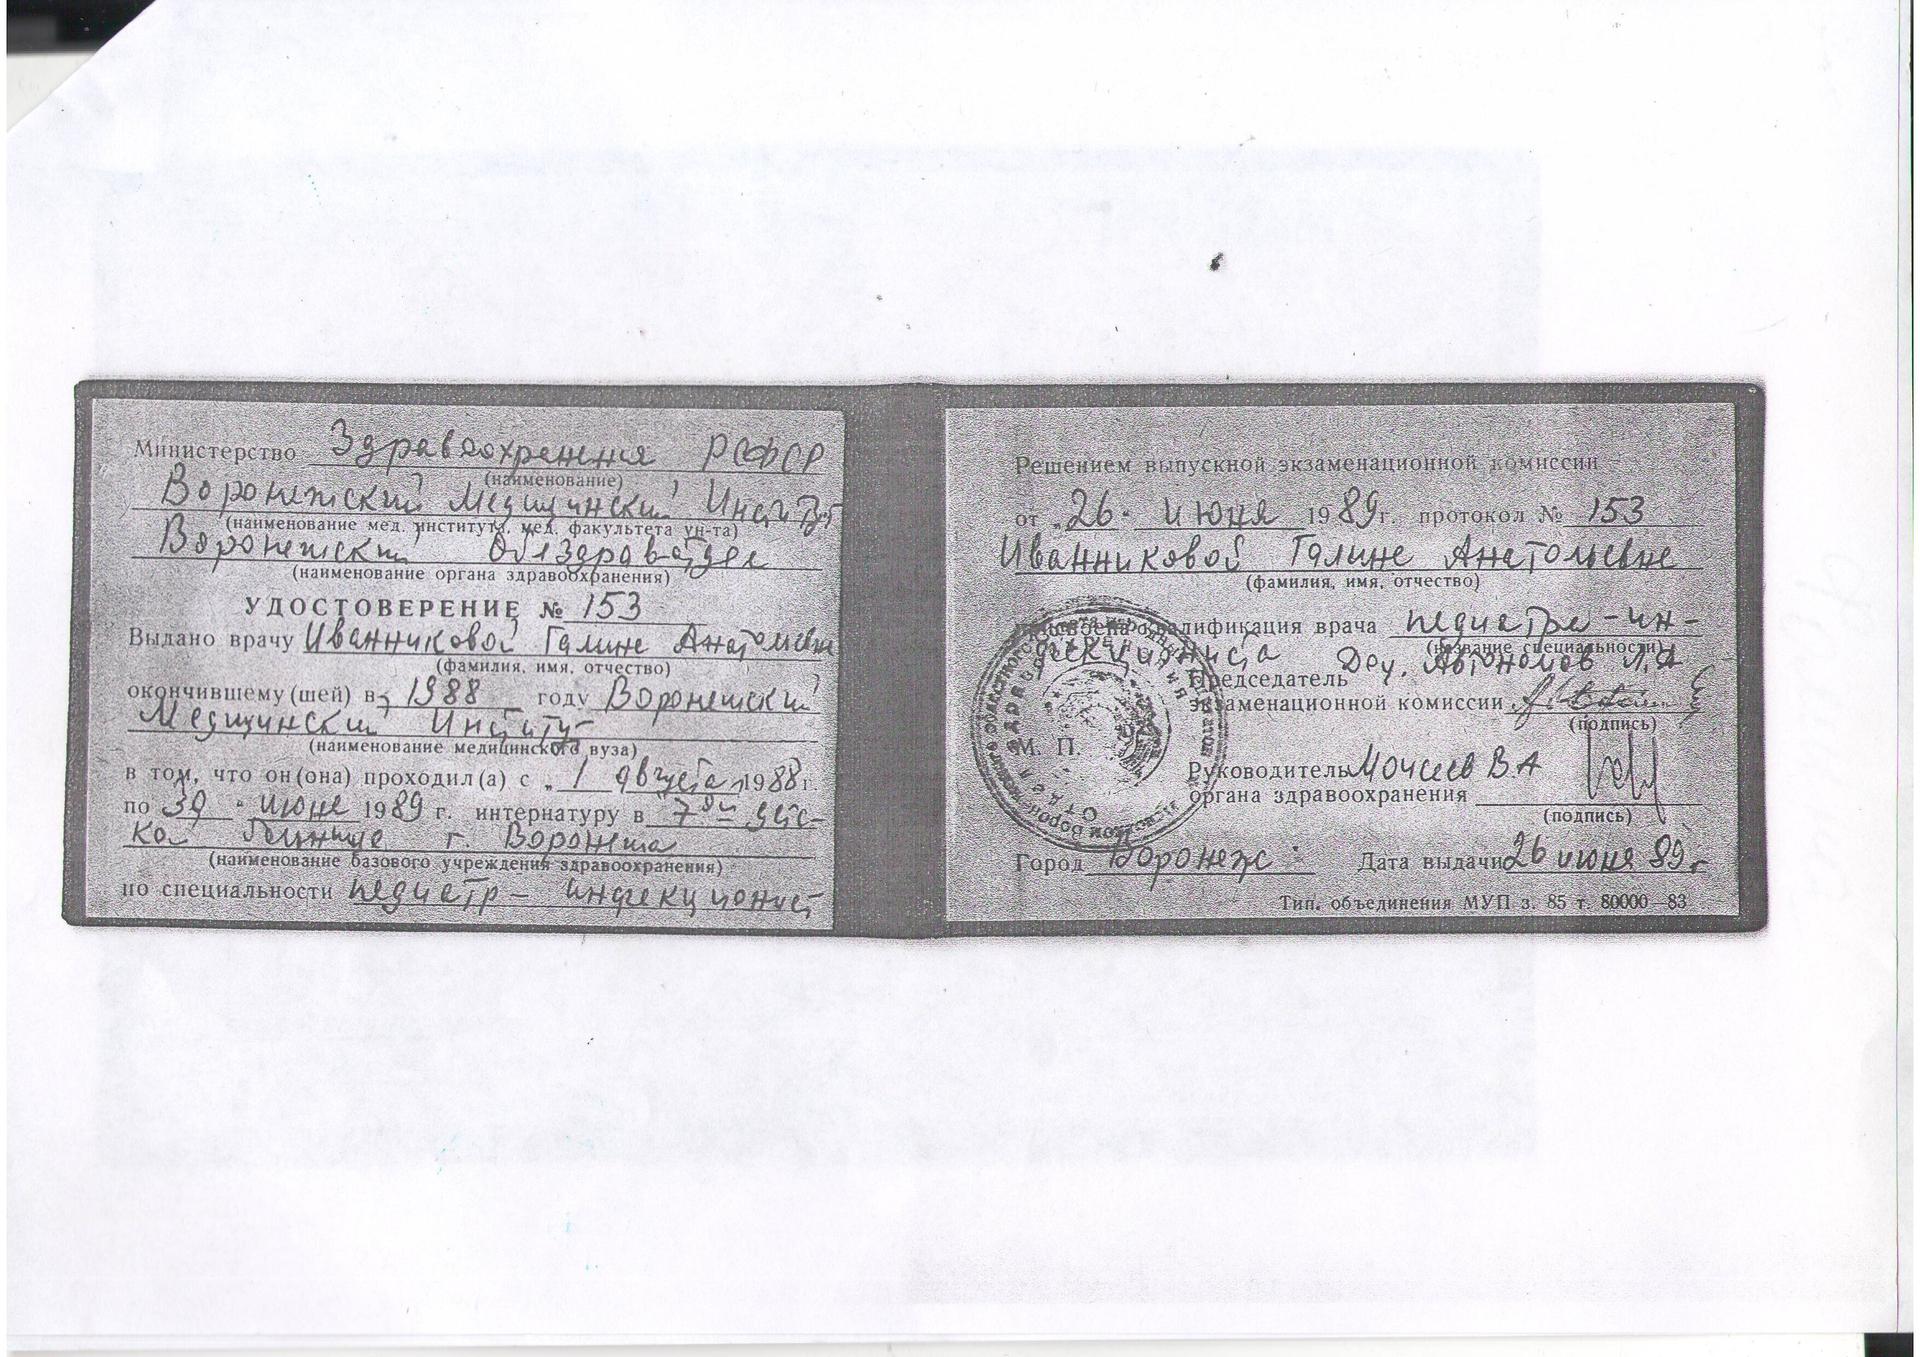 Министерство Здравоохренения РСФСР
(наименование)
Воронежский Медицинский Институт
(наименование мед. института, мед. факультета ун-та)
Воронежский Облздравотдел
(наименование органа здравоохранения)
УДОСТОВЕРЕНИЕ № 153
Выдано врачу Иванниковой Галине Анатольевне
(фамилия, имя, отчество)
окончившему (шей) в 1988 году Воронежский
Медицинский Институт
(наименование медицинского вуза)
в том, что он(она) проходил(а) с „ 1 августа 1988 г.
по 30 " июня 1989 г. интернатуру в 7ой
г. Воронежа
(наименование базового учреждения здравоохранения)
по специальности педиатр - инфекционист
Решением выпускной экзаменационной комиссии
от „26" июня 1989 г. протокол № 153
Иванниковой Галине Анатольевне
(фамилия, имя, отчество)
присвоена квалификация врача педиатра - ин-
(название специальности)
фекциониста Доц. Автономов Л.А
Председатель
экзаменационной комиссии
(подпись)
М. П.
Руководитель Моисеев В.А
органа здравоохранения
(подпись)
Город Воронеж Дата выдачи 26 июня 89 г.
Тип. объединения МУП з. 85 т. 80000—83